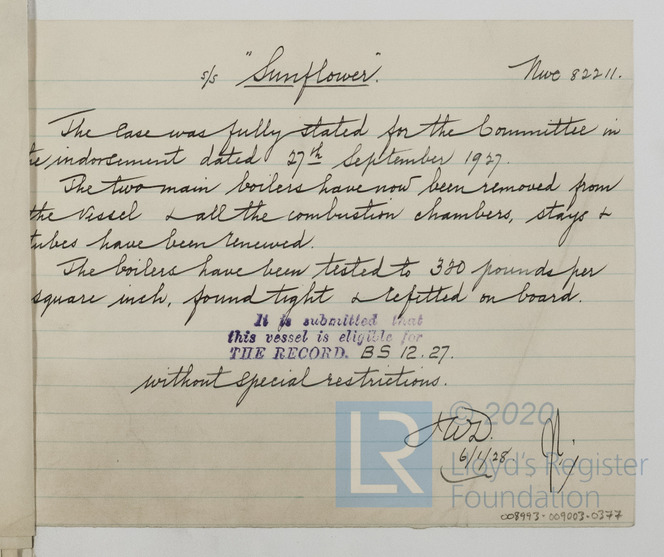 s/s "Sunflower". Nwc 82211.
The Case was fully stated for the Committee in
he indorsement dated 27th September 1927.
The two main boilers have now been removed from
the Vessel & all the combustion chambers, stays &
tubes have been renewed.
The boilers have been tested to 380 pounds per
square inch, found tight & refitted on board.
It is submitted that
this vessel is eligible for
THE RECORD. BS 12.27.
without special restrictions.
JWD.
6/1/28.
© 2020
LR
Lloyd's Register
Foundation
008993-009003-0377